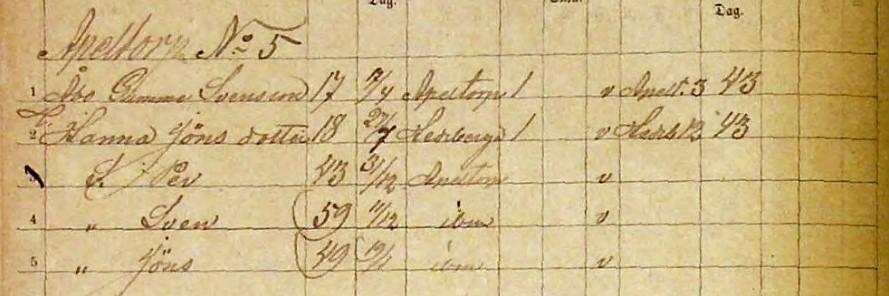 Dag.
Dag.
Apeltorp No 5
1 Åbo Gumme Svensson 17 7/4 Apeltorp 1 v Apelt. 3 43
2 H. Hanna Jöns dotter 18 27/7 1 v 12 43
3 S. Per 43 31/12 Apeltorp v
4 " Sven 59 11/12 ibm v
5 " Jöns 49 ibm v